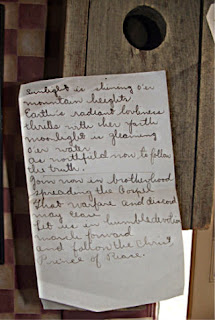 Sunlight is shining o'er
mountain heights
Earth's radiant loveliness
thrills with her youth
Moonlight is gleaming
o'er water
as northfield now to follow
the truth.
Join now in brotherhood
spreading the Gospel
That warfare and discord
may cease
Let us in humble devotion
march forward
and follow the Christ
Prince of Peace.